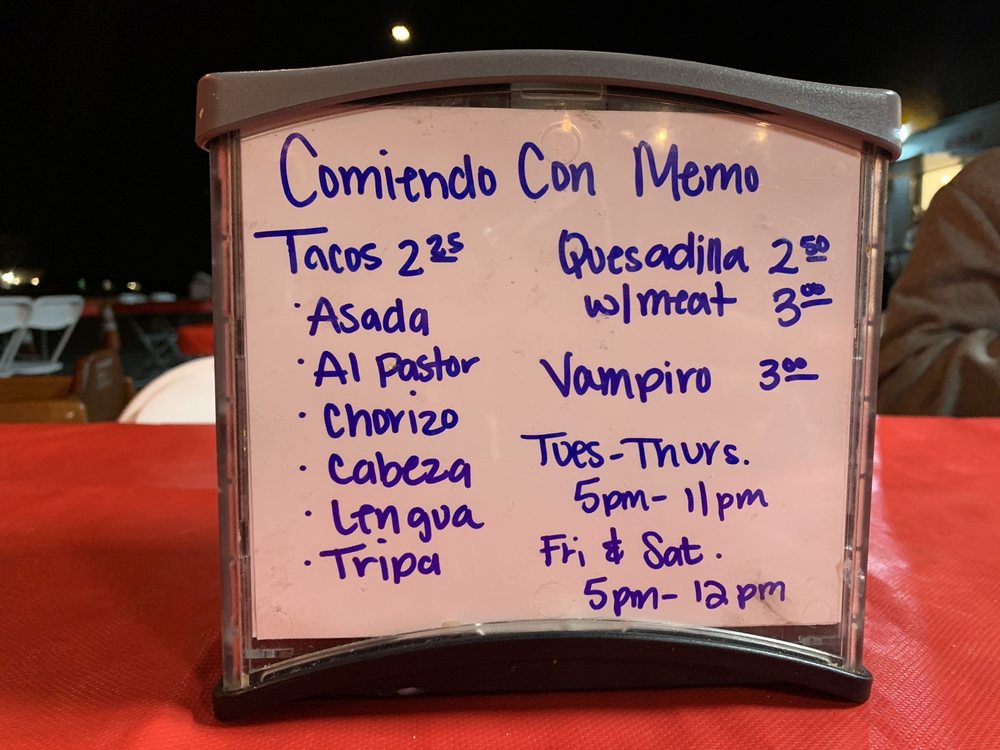 Comiendo Con Memo
Tacos 2.25
· Asada
· Al Pastor
· Chorizo
· Cabeza
· Lengua
· Tripa
Quesadilla 2.50
w/meat 3.00
Vampiro 3.00
Tues-Thurs.
5pm-11pm
Fri & Sat.
5pm-12pm